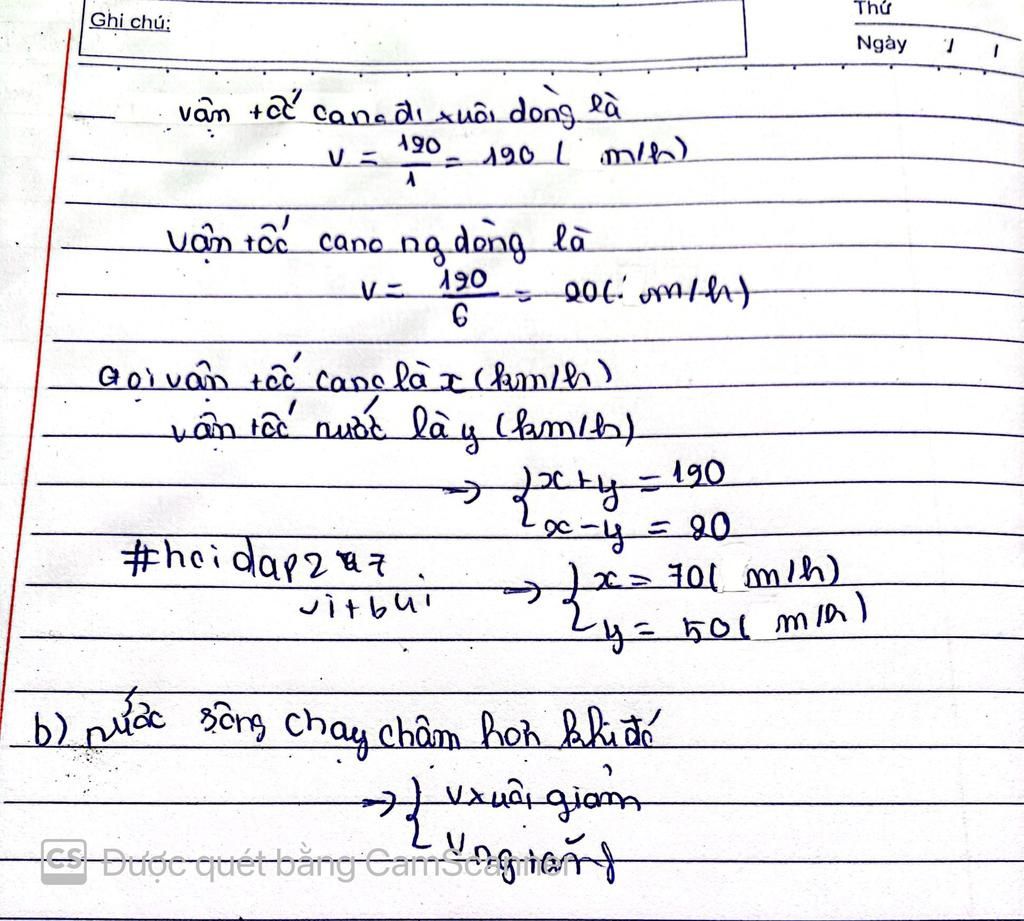 Ghi chú:
Thứ
Ngày / /
vận tốc cano đi xuôi dòng là
v = 120/1 = 120 ( m/h)
vận tốc cano ng dòng là
v = 120/6 = 20( m/h)
Gọi vận tốc cano là x (km/h)
vận tốc nước là y (km/h)
→ { x + y = 120
x - y = 20
#hoidap247
→ { x = 70( m/h)
vitbui
y = 50( m/h)
b) nước sông chạy chậm hơn khi đó
→ { v xuôi giảm
v ng tăng
CS Được quét bằng CamScanner